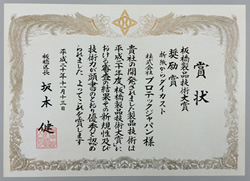 賞状
板橋製品技術大賞
奨励賞
新版からダイカスト
株式会社プロテックジャパン様
貴社の開発された製品技術は
平成二十年度板橋製品技術大賞に
おける審査の結果その新規性及び
技術力が頭書のとおり優秀と認め
られましたよってこれを賞します
平成二十年十一月十三日
板橋区長
坂本健